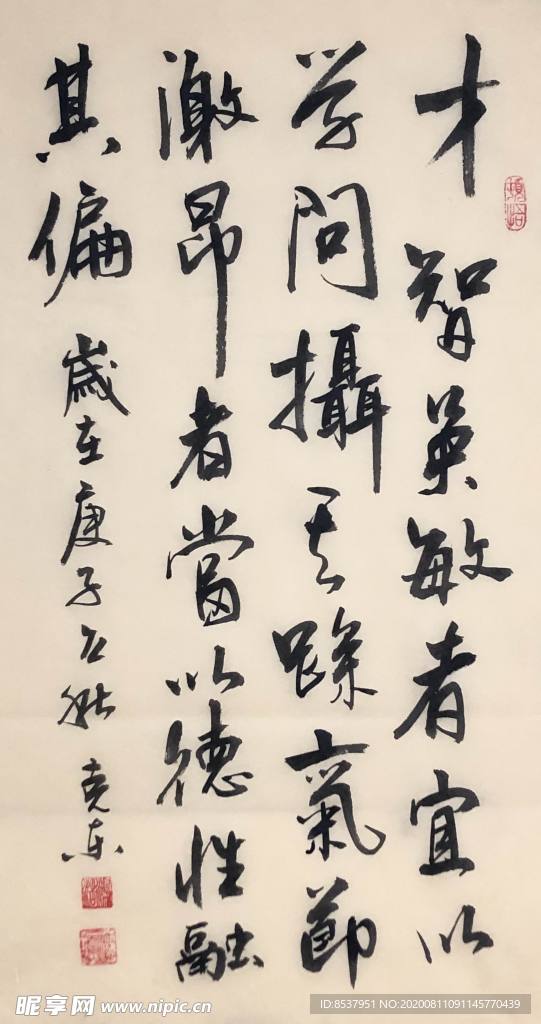 才智英敏者宜以
学问攝其躁氣節
激昂者當以德性融
其偏
歲在庚子之秋 克东
昵享网 www.nipic.cn
ID:8537951 NO:20200811091145770439